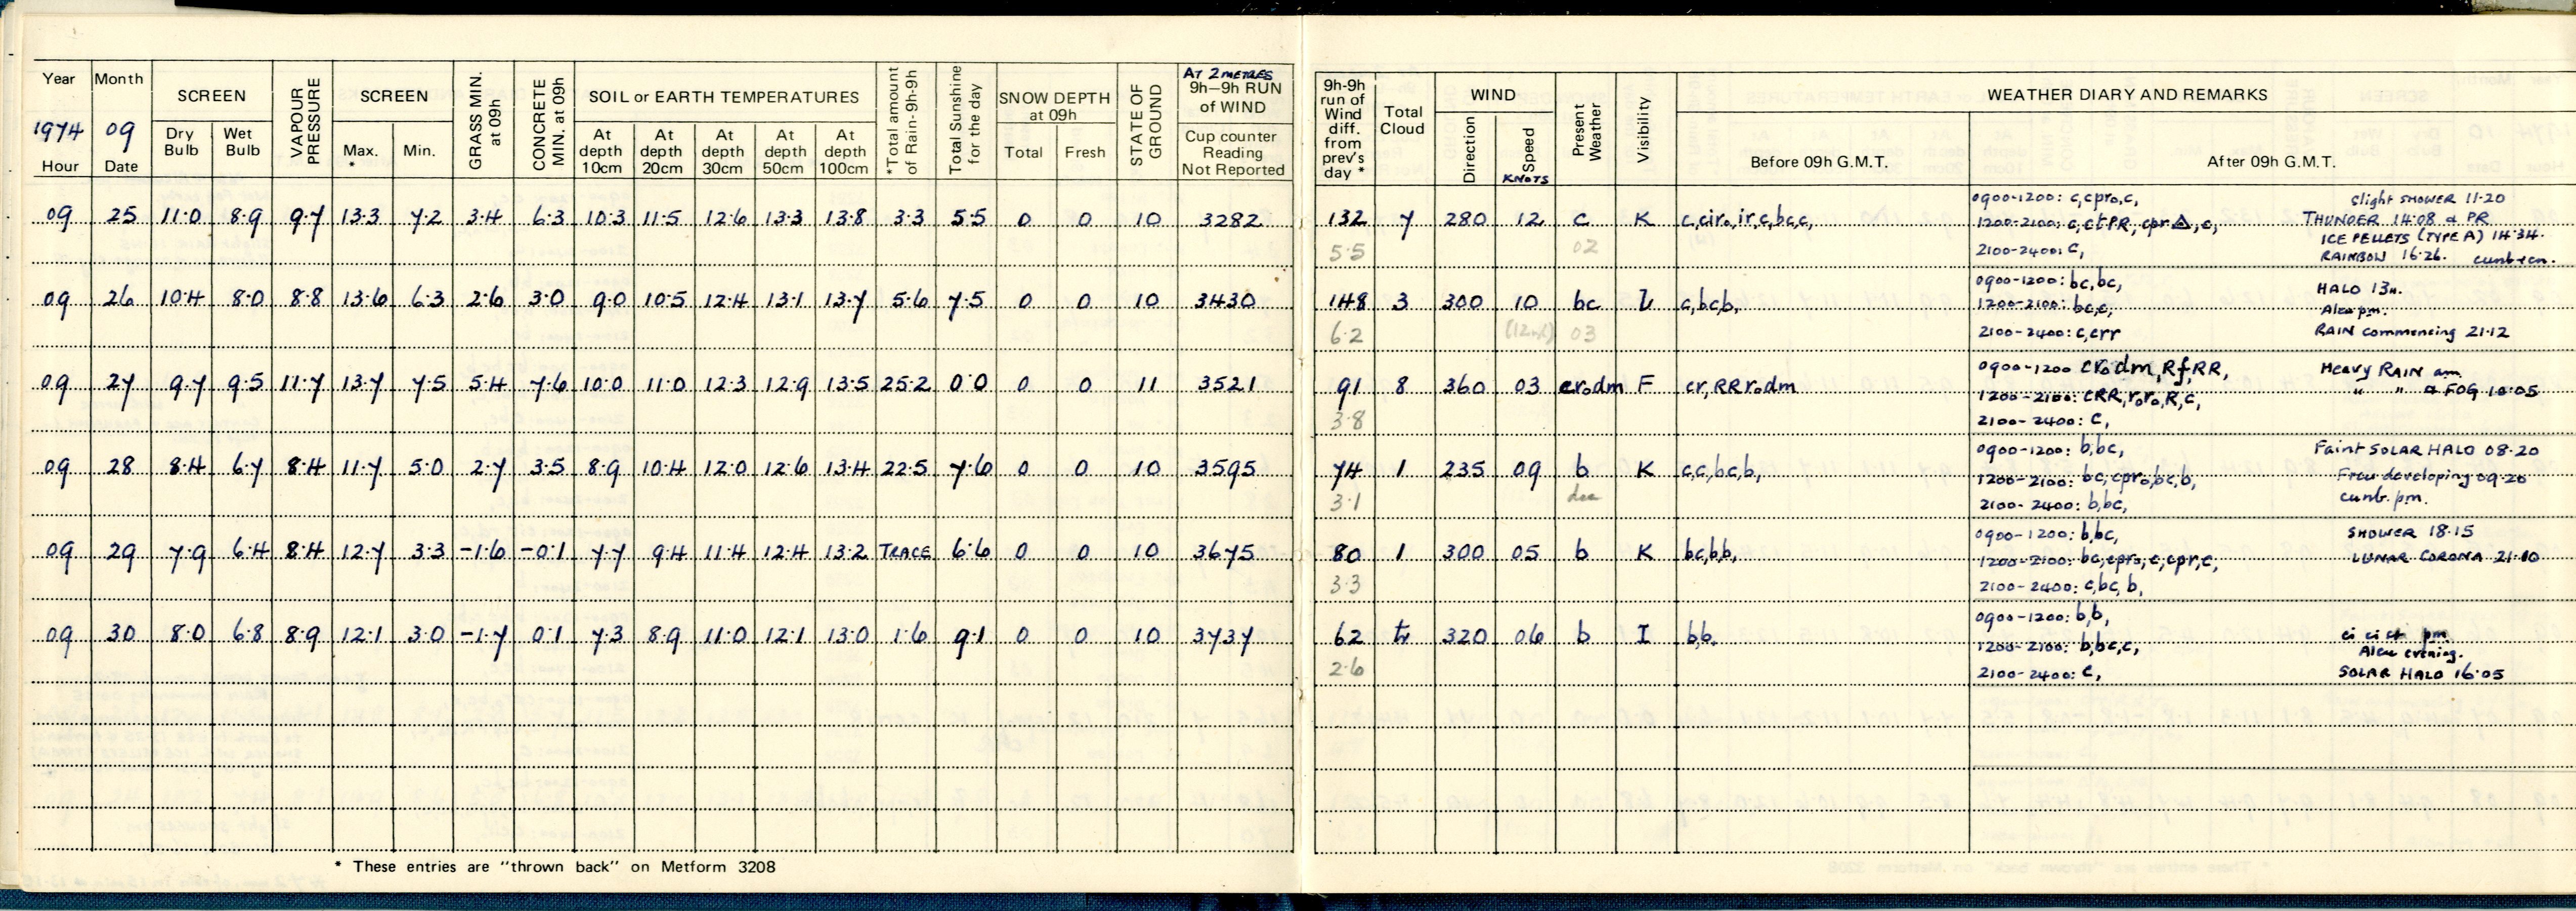 Year Month SCREEN VAPOUR PRESSURE SCREEN GRASS MIN. at 09h CONCRETE MIN. at 09h SOIL or EARTH TEMPERATURES *Total amount of Rain-9h-9h Total Sunshine for the day SNOW DEPTH at 09h STATE OF GROUND AT 2 METRES 9h–9h RUN of WIND
1974 09
Hour Date Dry Bulb Wet Bulb Max. * Min. At depth 10cm At depth 20cm At depth 30cm At depth 50cm At depth 100cm Total Fresh Cup counter Reading Not Reported
9h-9h run of Wind diff. from prev's day * Total Cloud WIND Direction Speed KNOTS Present Weather Visibility WEATHER DIARY AND REMARKS
Before 09h G.M.T. After 09h G.M.T.
09 25 11.0 8.9 9.7 13.3 7.2 3.4 6.3 10.3 11.5 12.6 13.3 13.8 3.3 5.5 0 0 10 3282 132 7 280 12 c K c,ciro,ir,c,bc,c,
5.5 02
0900-1200: c,cpro,c, slight SHOWER 11.20
1200-2100: c,ctPR, cpr△,c, THUNDER 14.08 & PR
ICE PELLETS (TYPE A) 14.34.
2100-2400: c, RAINBOW 16.26. cunb+cn.
09 26 10.4 8.0 8.8 13.6 6.3 2.6 3.0 9.0 10.5 12.4 13.1 13.7 5.6 7.5 0 0 10 3430 148 3 300 10 bc c,bcb,
6.2 03
0900-1200: bc,bc, HALO 13h.
1200-2100: bc,c, pm.
2100-2400: c,crr RAIN commencing 21.12
09 27 9.7 9.5 11.7 13.7 7.5 5.4 7.6 10.0 11.0 12.3 12.9 13.5 25.2 0.0 0 0 11 3521 91 8 360 03 crodm F cr,RRrodm
3.8
0900-1200 crodm,Rf,RR, Heavy RAIN am.
1200-2100: cRR,roro,R,c, " " & FOG 10.05
2100-2400: c,
09 28 8.4 6.7 8.4 11.7 5.0 2.7 3.5 8.9 10.4 12.0 12.6 13.4 22.5 7.6 0 0 10 3595 74 1 235 09 b K c,c,bc,b,
3.1
0900-1200: b,bc, Faint SOLAR HALO 08.20
1200-2100: bc,cpro,bc,b, Frcu developing 09.20
2100-2400: b,bc, cunb. pm.
09 29 7.9 6.4 8.4 12.7 3.3 -1.6 -0.1 7.7 9.4 11.4 12.4 13.2 TRACE 6.6 0 0 10 3675 80 1 300 05 b K bc,bb,
3.3
0900-1200: b,bc, SHOWER 18.15
1200-2100: bc,cpro,c,cpr,c, LUNAR CORONA 21.10
2100-2400: c,bc,b,
09 30 8.0 6.8 8.9 12.1 3.0 -1.7 0.1 7.3 8.9 11.0 12.1 13.0 1.6 9.1 0 0 10 3737 62 tr 320 06 b I b,b,
2.6
0900-1200: b,b,
1200-2100: b,bc,c, ci ci pm
evening.
2100-2400: c, SOLAR HALO 16.05
* These entries are "thrown back" on Metform 3208